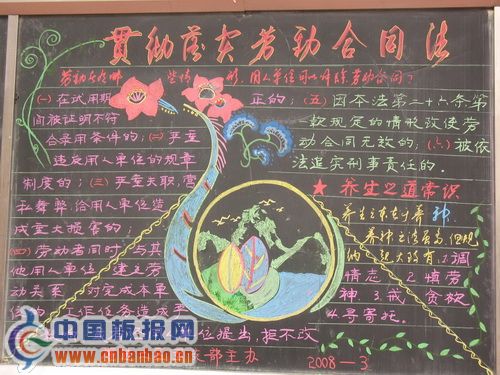 贯彻落实劳动合同法
劳动者有哪些情形,用人单位可以解除劳动合同?
(一)在试用期
间被证明不符
合录用条件的;(二)严重
违反用人单位的规章
制度的;(三)严重失职,营
私舞弊,给用人单位造
成重大损害的;
(四)劳动者同时与其
他用人单位建立劳
动关系,对完成本单
工作任务造成严
位提出,拒不改
正的;(五)因本法第二十六条第一
款规定的情形致使劳
动合同无效的;(六)被依
法追究刑事责任的。
★养生之道常识
养生之本在于养神,
养神之法虽多,但归
纳起大致有:1.调
情志 2.慎劳
神 3.戒贪欲
4.寄托
部主办 2008-3
中国板报网
www.cnbanbao.cn